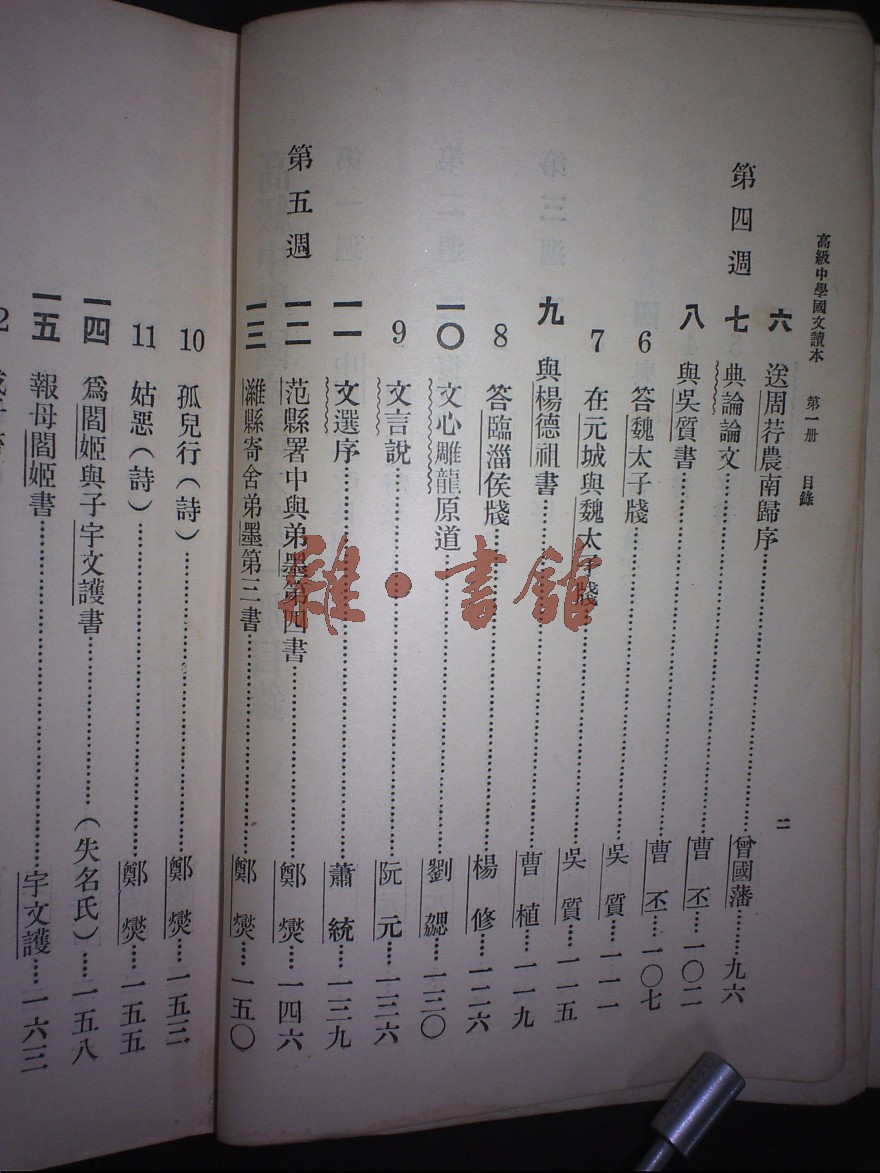 高級中學國文讀本 第一册 目錄
二
六 送周荇農南歸序……曾國藩……九六
第四週
七 典論論文……曹丕……一〇二
八 與吳質書……曹丕……一〇七
6 答魏太子牋……吳質……一一一
7 在元城與魏太子牋……吳質……一一五
九 與楊德祖書……曹植……一一九
8 答臨淄侯牋……楊修……一二六
一〇 文心雕龍原道……劉勰……一三〇
9 文言說……阮元……一三六
一一 文選序……蕭統……一三九
第五週
一二 范縣署中與弟墨第四書……鄭燮……一四六
一三 濰縣寄舍弟墨第三書……鄭燮……一五〇
10 孤兒行(詩)……鄭燮……一五三
11 姑惡(詩)……鄭燮……一五五
一四 爲閻姬與子宇文護書……(失名氏)……一五八
一五 報母閻姬書……宇文護……一六三
雜·書館